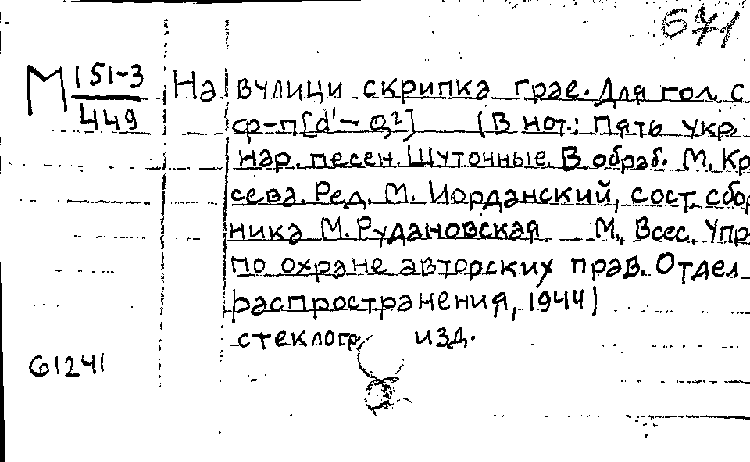 671
М 151-3 На вулици скрипка грае. Для гол. с
449 ф-п [d¹ – g²] (В нот.: Пять укр
нар. песен. Шуточные. В обраб. М. Кр
сева. Ред. М. Иорданский, сост. сбор
ника М. Рудановская М., Всес. Упр
по охране авторских прав. Отдел
распространения, 1944)
стеклогр. изд.
61241